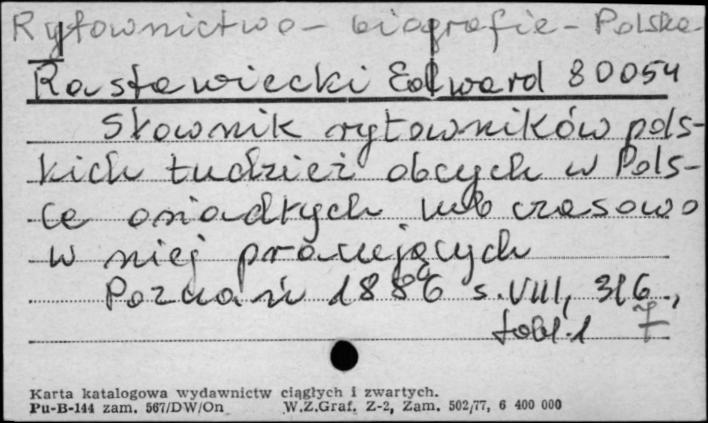 Rytownictwo - biografie - Polska
Rastawiecki Edward 80054
Słownik rytowników pols-
kich tudzież obcych w Pols-
ce osiadłych lub czasowo
w niej pracujących
Poznań 1886 s. VIII, 316,
tabl. 1 7
Karta katalogowa wydawnictw ciągłych i zwartych.
Pu-B-144 zam. 567/DW/On W.Z.Graf. Z-2, Zam. 502/77, 6 400 000